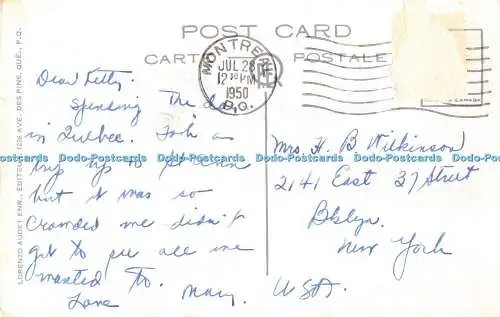 POST CARD
CARTE POSTALE
MONTREAL
JUL 28
12 30 PM
1950
P.Q.
CANADA
Dear Kitty.
Spending The day
in Quebec. Took a
trip up to St Ann
but it was so
crowded we didn't
get to see all we
wanted to.
Love Mary.
Mrs. H. B Wilkinson
2141 East 37 Street
Bklyn.
New York
USA.
LORENZO AUDET ENR., EDITEUR, 1225 AVE. DES PINS, QUÉ., P.Q.
Dodo-Postcards Dodo-Postcards Dodo-Postcards Dodo-Postcards Dodo-Postcards Dodo-Postcards